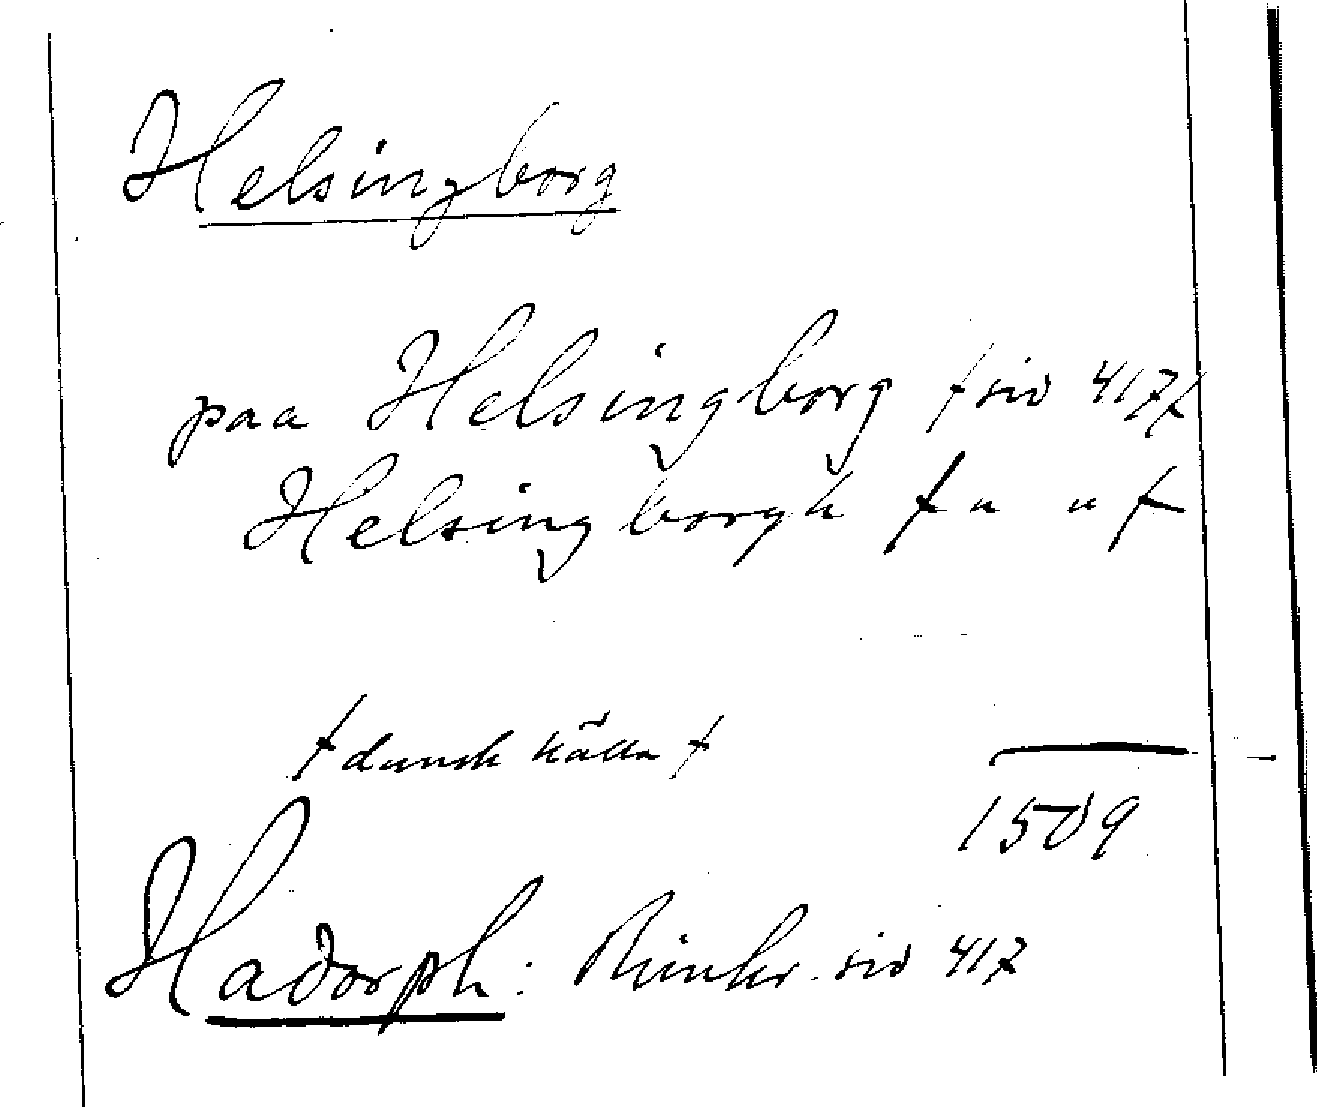 Helsingborg
paa Helsingborg /sid 417/
Helsingborgh / " " /
/dansk källa/
1509
Hadorph: Rimkr. sid 417